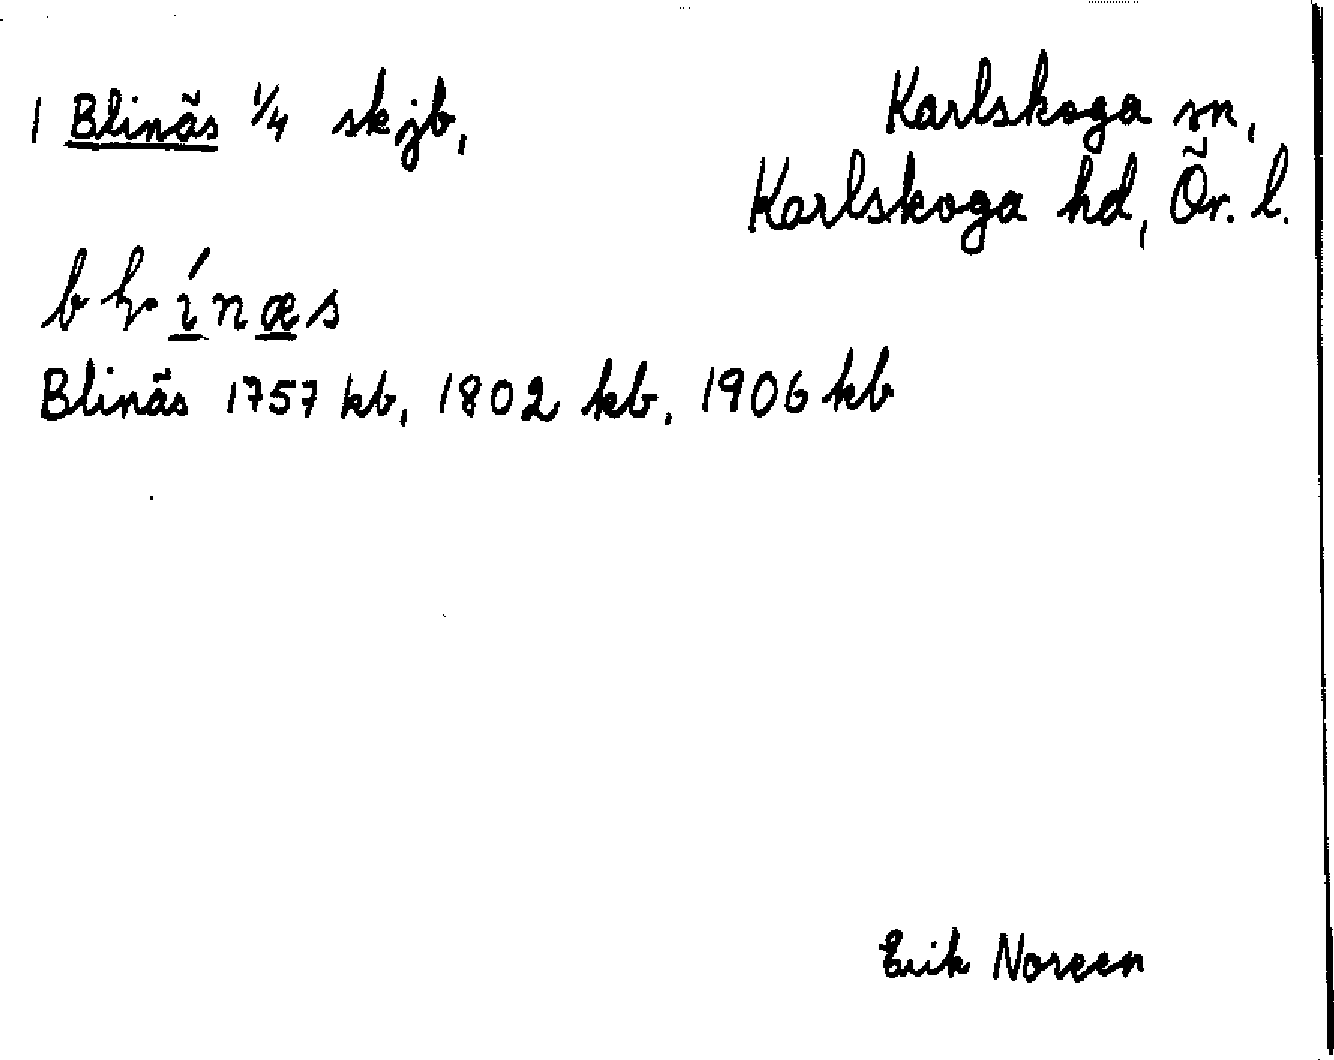 1 Blinäs 1/4 skjb,
Karlskoga sn,
Karlskoga hd, Ör. l.
Blinäs 1757 kb, 1802 kb, 1906 kb
Erik Noreen